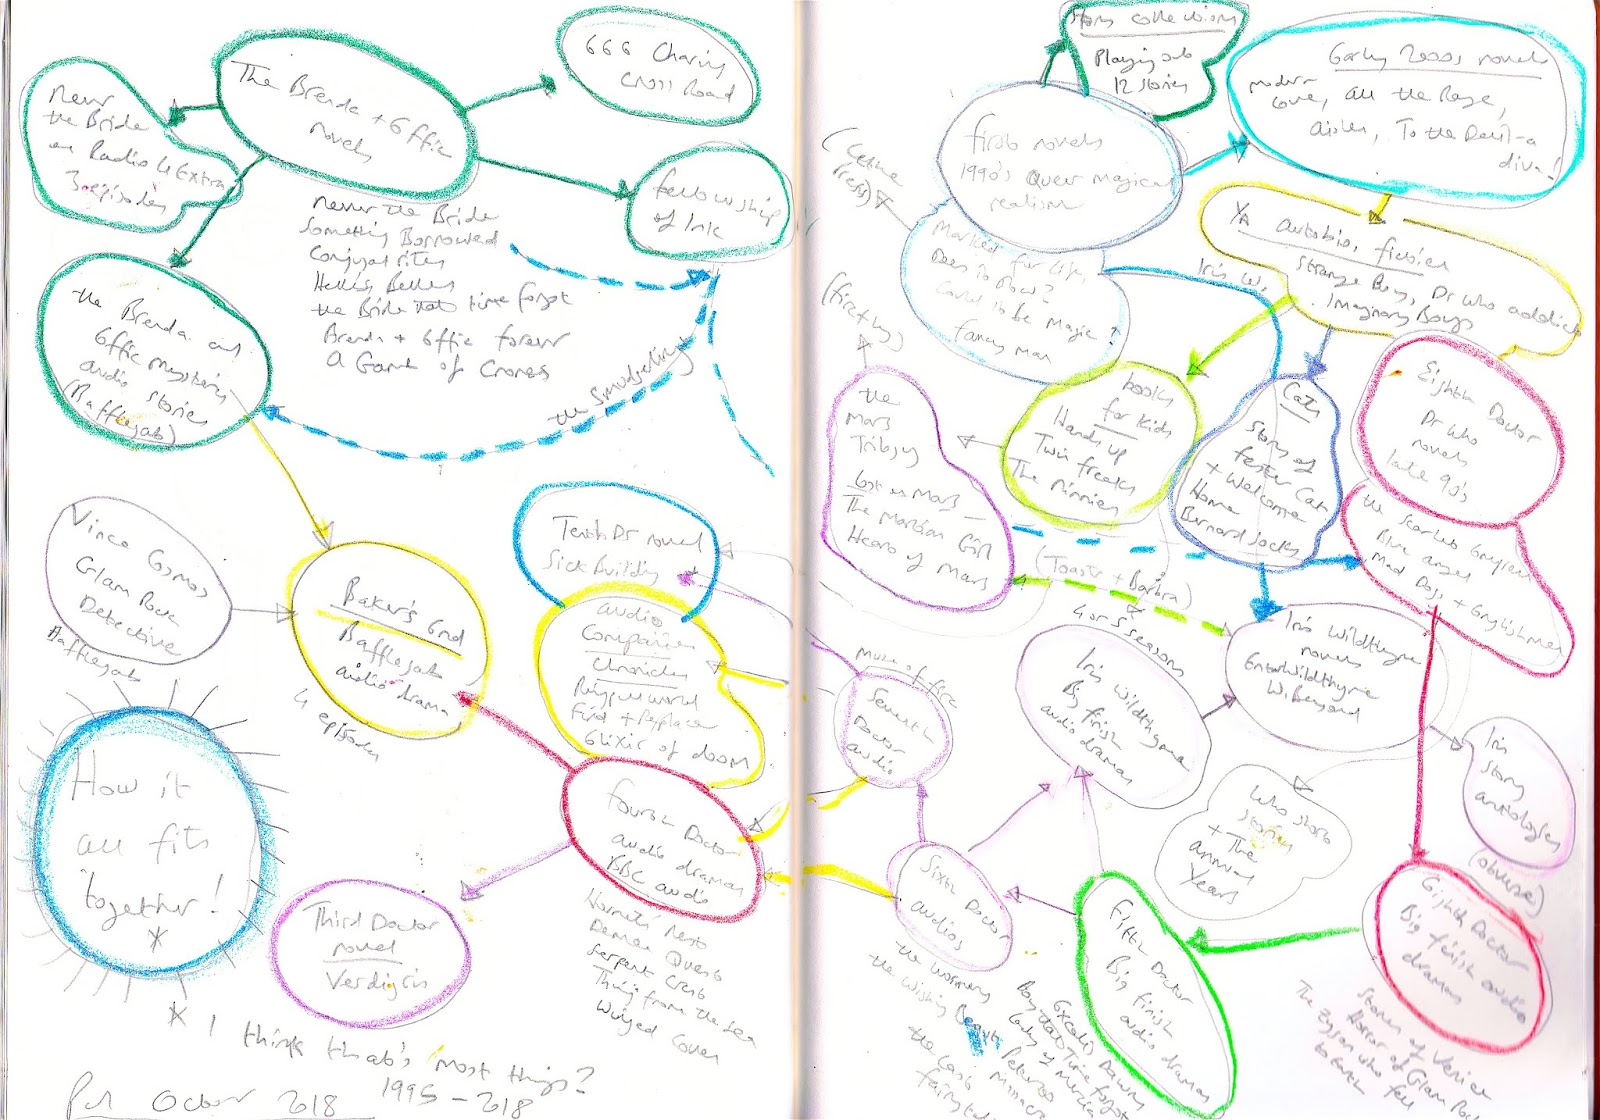 The Brenda + Effie
novels
666 Charing
Cross Road
Never
the Bride
on Radio 4 Extra
3 episodes
fellowship
of Ink
Never the Bride
Something Borrowed
Conjugal Rites
Hell's Belles
the Bride that time forgot
Brenda + Effie forever
A Game of Crones
the Brenda and
Effie mysteries
audio stories
(Bafflegab)
the Smudgelings
Vince Cosmos
Glam Rock
Detective
Bafflegab
Baker's End
Bafflegab
audio drama
4 episodes
Tenth Dr novel
Sick Building
audio
Companion
Chronicles
Ringpullworld
Find + Replace
Elixir of doom
fourth Doctor
audio dramas
BBC audio
Hornets' Nest
Demon Quest
Serpent Crest
Thing from the Sea
Winged Coven
Third Doctor
novel
Verdigris
How it
all fits
together!
*
* I think that's most things?
1995 - 2018
Paul October 2018
Story collections
Playing out
12 Stories
first novels
1990's Queer magical
realism
Early 2000s novels
modern
love, all the Rage,
aisles, To the Devil - a
diva!
(Lethe
Press)
Marked for Life,
Does it Show?
Could it be Magic?
fancy man
YA autobio, fiction
Strange Boy, Dr Who addict
Imaginary Boys
Iris W.
(firefly)
the
Mars
Trilogy
Lost on Mars -
The Martian Girl
Heart of Mars
books
for kids
Hands up
Twin freaks
The Ninnies
Cats
Story of
Fester Cat
+ Welcome
Home
Bernard Socks
Eighth Doctor
Dr Who
novels
late 90's
the Scarlet Empress
Blue angel
Mad Dogs + Englishmen
(Toaster + Barbra)
4 or 5 seasons
Iris Wildthyme
Big finish
audio dramas
Iris Wildthyme
novels
Enter Wildthyme
W. Beyond
Iris
story
anthologies
(obverse)
Who short
stories
+ The
annual
Years
muse of fire
Seventh
Doctor
audio
Sixth Doctor
audios
the wormery
the Wishing Beast
Fifth Doctor
Big finish
audio dramas
Excelis Dawns
Boy that Time forgot
Lady of Mercia
Peterloo
Massacre
Eighth Doctor
Big finish audio
dramas
Stones of Venice
Horror of Glam Rock
The Zygon who fell
to Earth